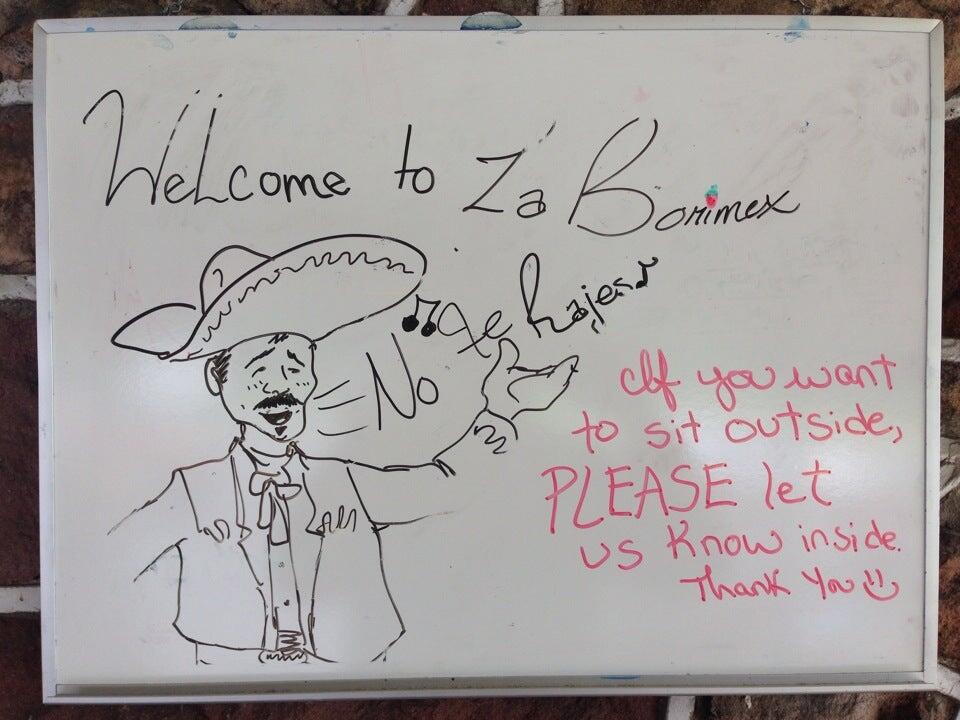 Welcome to Za Borimex
♫ No te Rajes ♪
If you want
to sit outside,
PLEASE let
us know inside.
Thank You